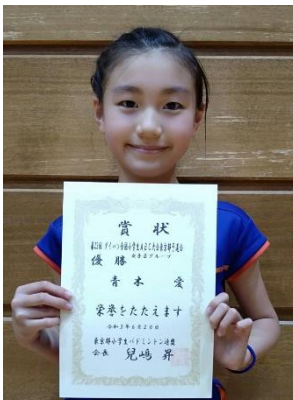 賞状
第22回 ダイハツ全国小学生ABC大会東京都予選会
優勝 女子Bグループ
青木 愛
栄誉をたたえます
令和3年6月20日
東京都小学生バドミントン連盟
会長 兒嶋 昇